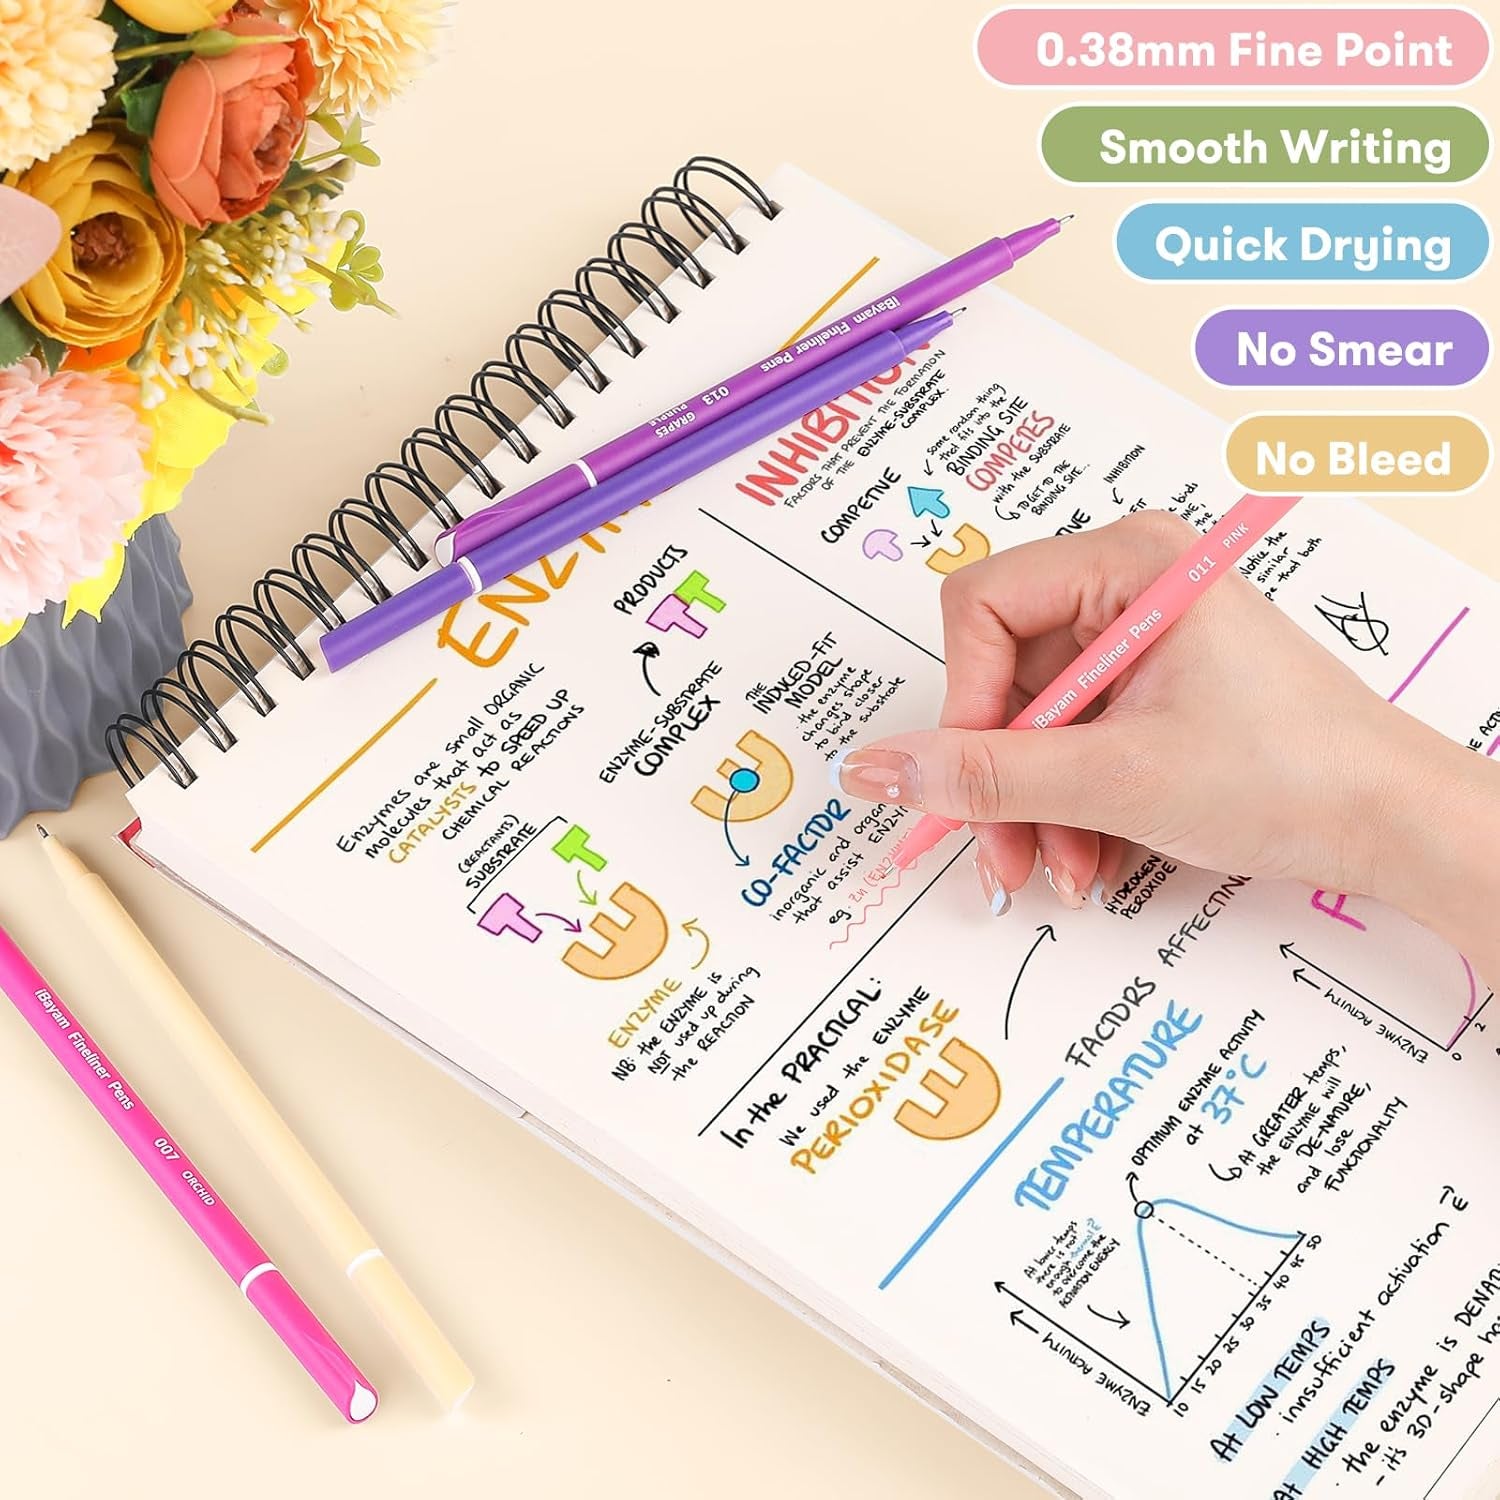 0.38mm Fine Point
Smooth Writing
Quick Drying
No Smear
No Bleed
iBayam Fineliner Pens 013 GRAPES
PURPLE
INHIBITION
FACTORS THAT PREVENT THE FORMATION
OF THE ENZYME-SUBSTRATE
COMPLEX.
COMPETIVE
some random thing
that fits into the
BINDING SITE
COMPETES
with the SUBSTRATE
TO GET TO THE
BINDING SITE...
INHIBITION
Notice the
similar
that both
iBayam Fineliner Pens 011 PINK
Enzymes are small ORGANIC
molecules that act as
CATALYSTS to SPEED UP
CHEMICAL REACTIONS
(REACTANTS)
SUBSTRATE
PRODUCTS
ENZYME-SUBSTRATE
COMPLEX
THE
INDUCED-FIT
MODEL
the enzyme
changes shape
to bind closer
to the substrate
CO-FACTOR
inorganic and organ
that assist ENZY
eg. Zn (ENZYM
ENZYME
NB: the ENZYME is
NOT used up during
the REACTION
In the PRACTICAL:
We used the ENZYME
PERIOXIDASE
HYDROGEN
PEROXIDE
FACTORS AFFECTING
TEMPERATURE
OPTIMUM ENZYME ACTIVITY
at 37°C
At GREATER temps,
the ENZYME will
DE-NATURE,
and lose
FUNCTIONALITY
At lower temps
there is not
enough thermal E
to overcome the
ACTIVATION ENERGY
ENZYME ACTIVITY
10 15 20 25 30 35 40 45 50
ENZYME ACTIVITY
0 2
At LOW TEMPS
· innsufficient activation E
At HIGH TEMPS
· the enzyme is DENA
- it's 3D-shape ha
iBayam Fineliner Pens 007 ORCHID